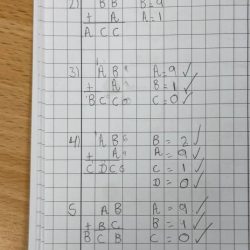 2) BB B=9
+ A A=1
ACC
3) AB A=9 ✓
+ A B=1 ✓
BCC C=0 ✓
4) AB B=2 ✓
+ A A=9 ✓
CDC C=1 ✓
D=0 ✓
5 AB A=9 ✓
+BC B=1 ✓
BCB C=0 ✓